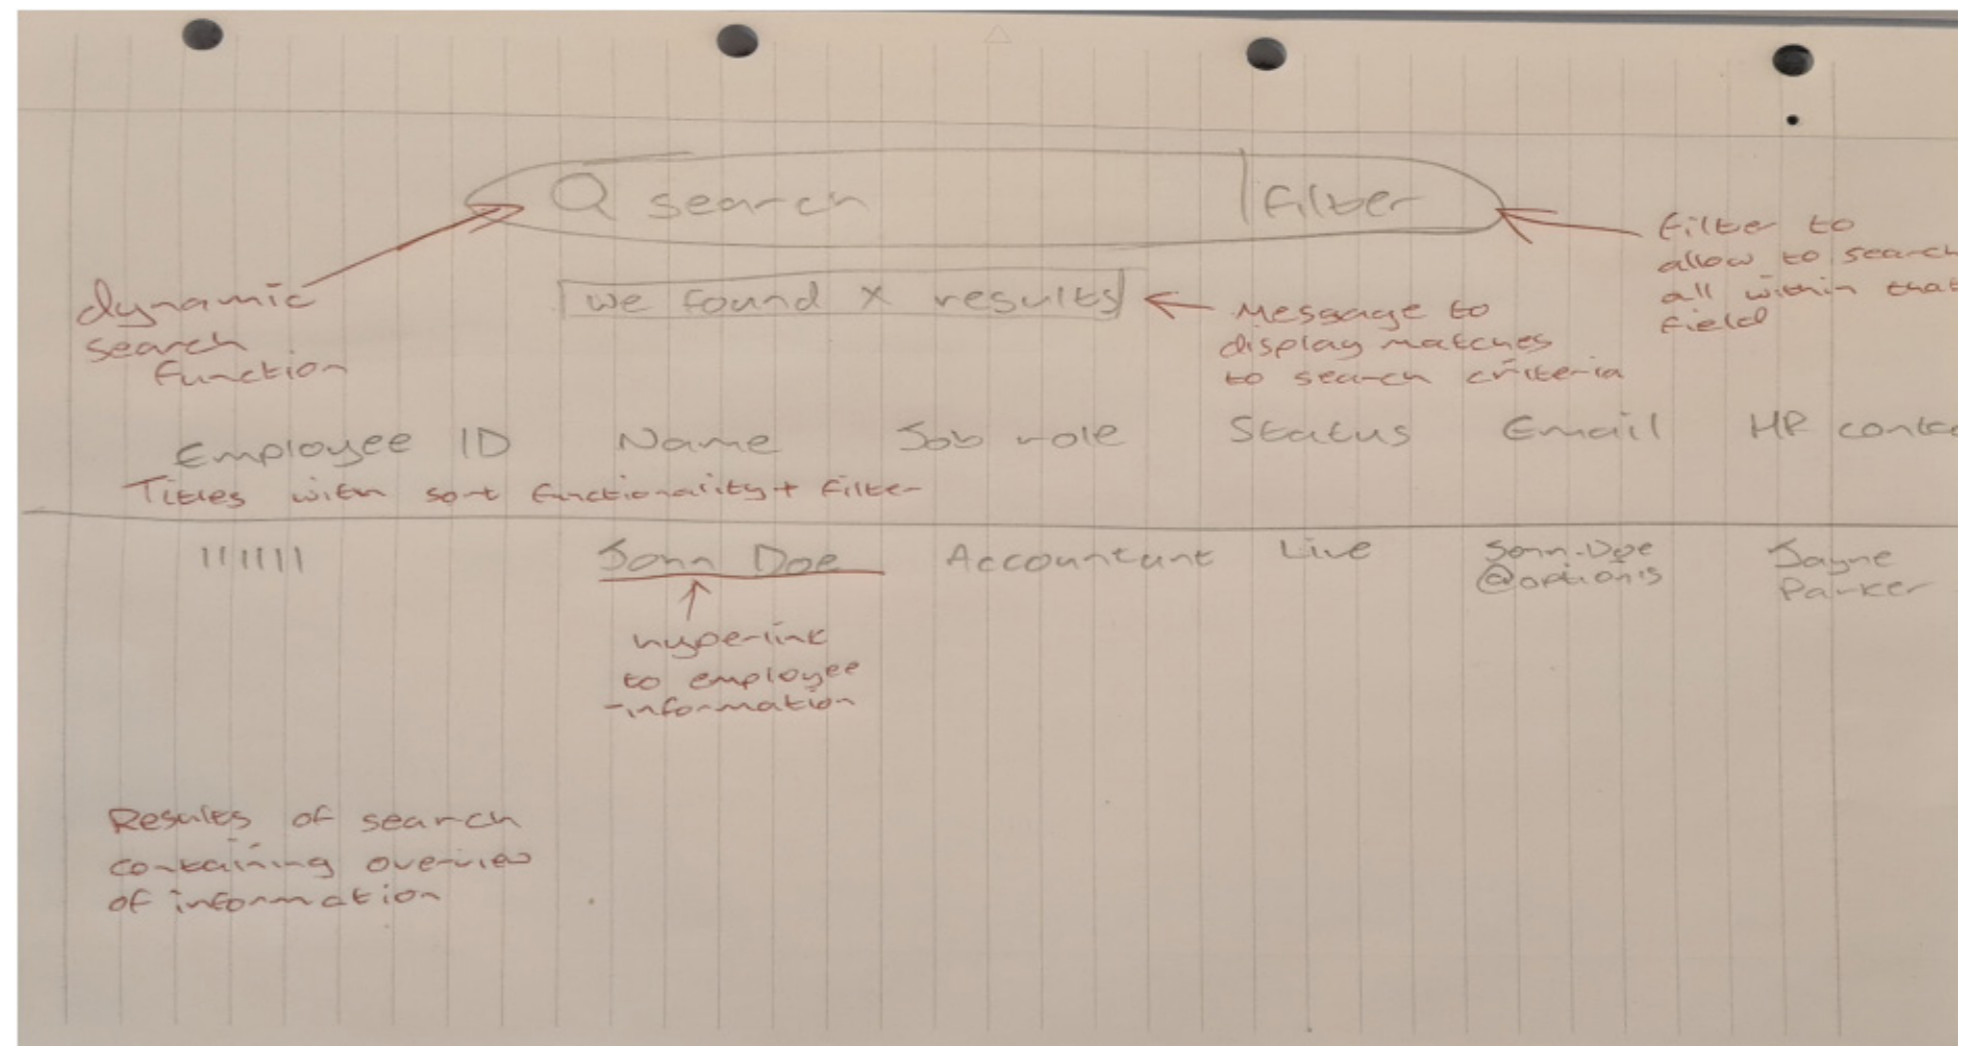 search
filter
filter to
allow to search
all within that
field
dynamic
search
function
we found x results
Message to
display matches
to search criteria
Employee ID Name Job role Status Email HR conta
Titles with sort functionality + filter
1111111 John Doe Accountant Live John.Doe Jayne
@optionis Parker
hyperlink
to employee
information
Results of search
containing overview
of information